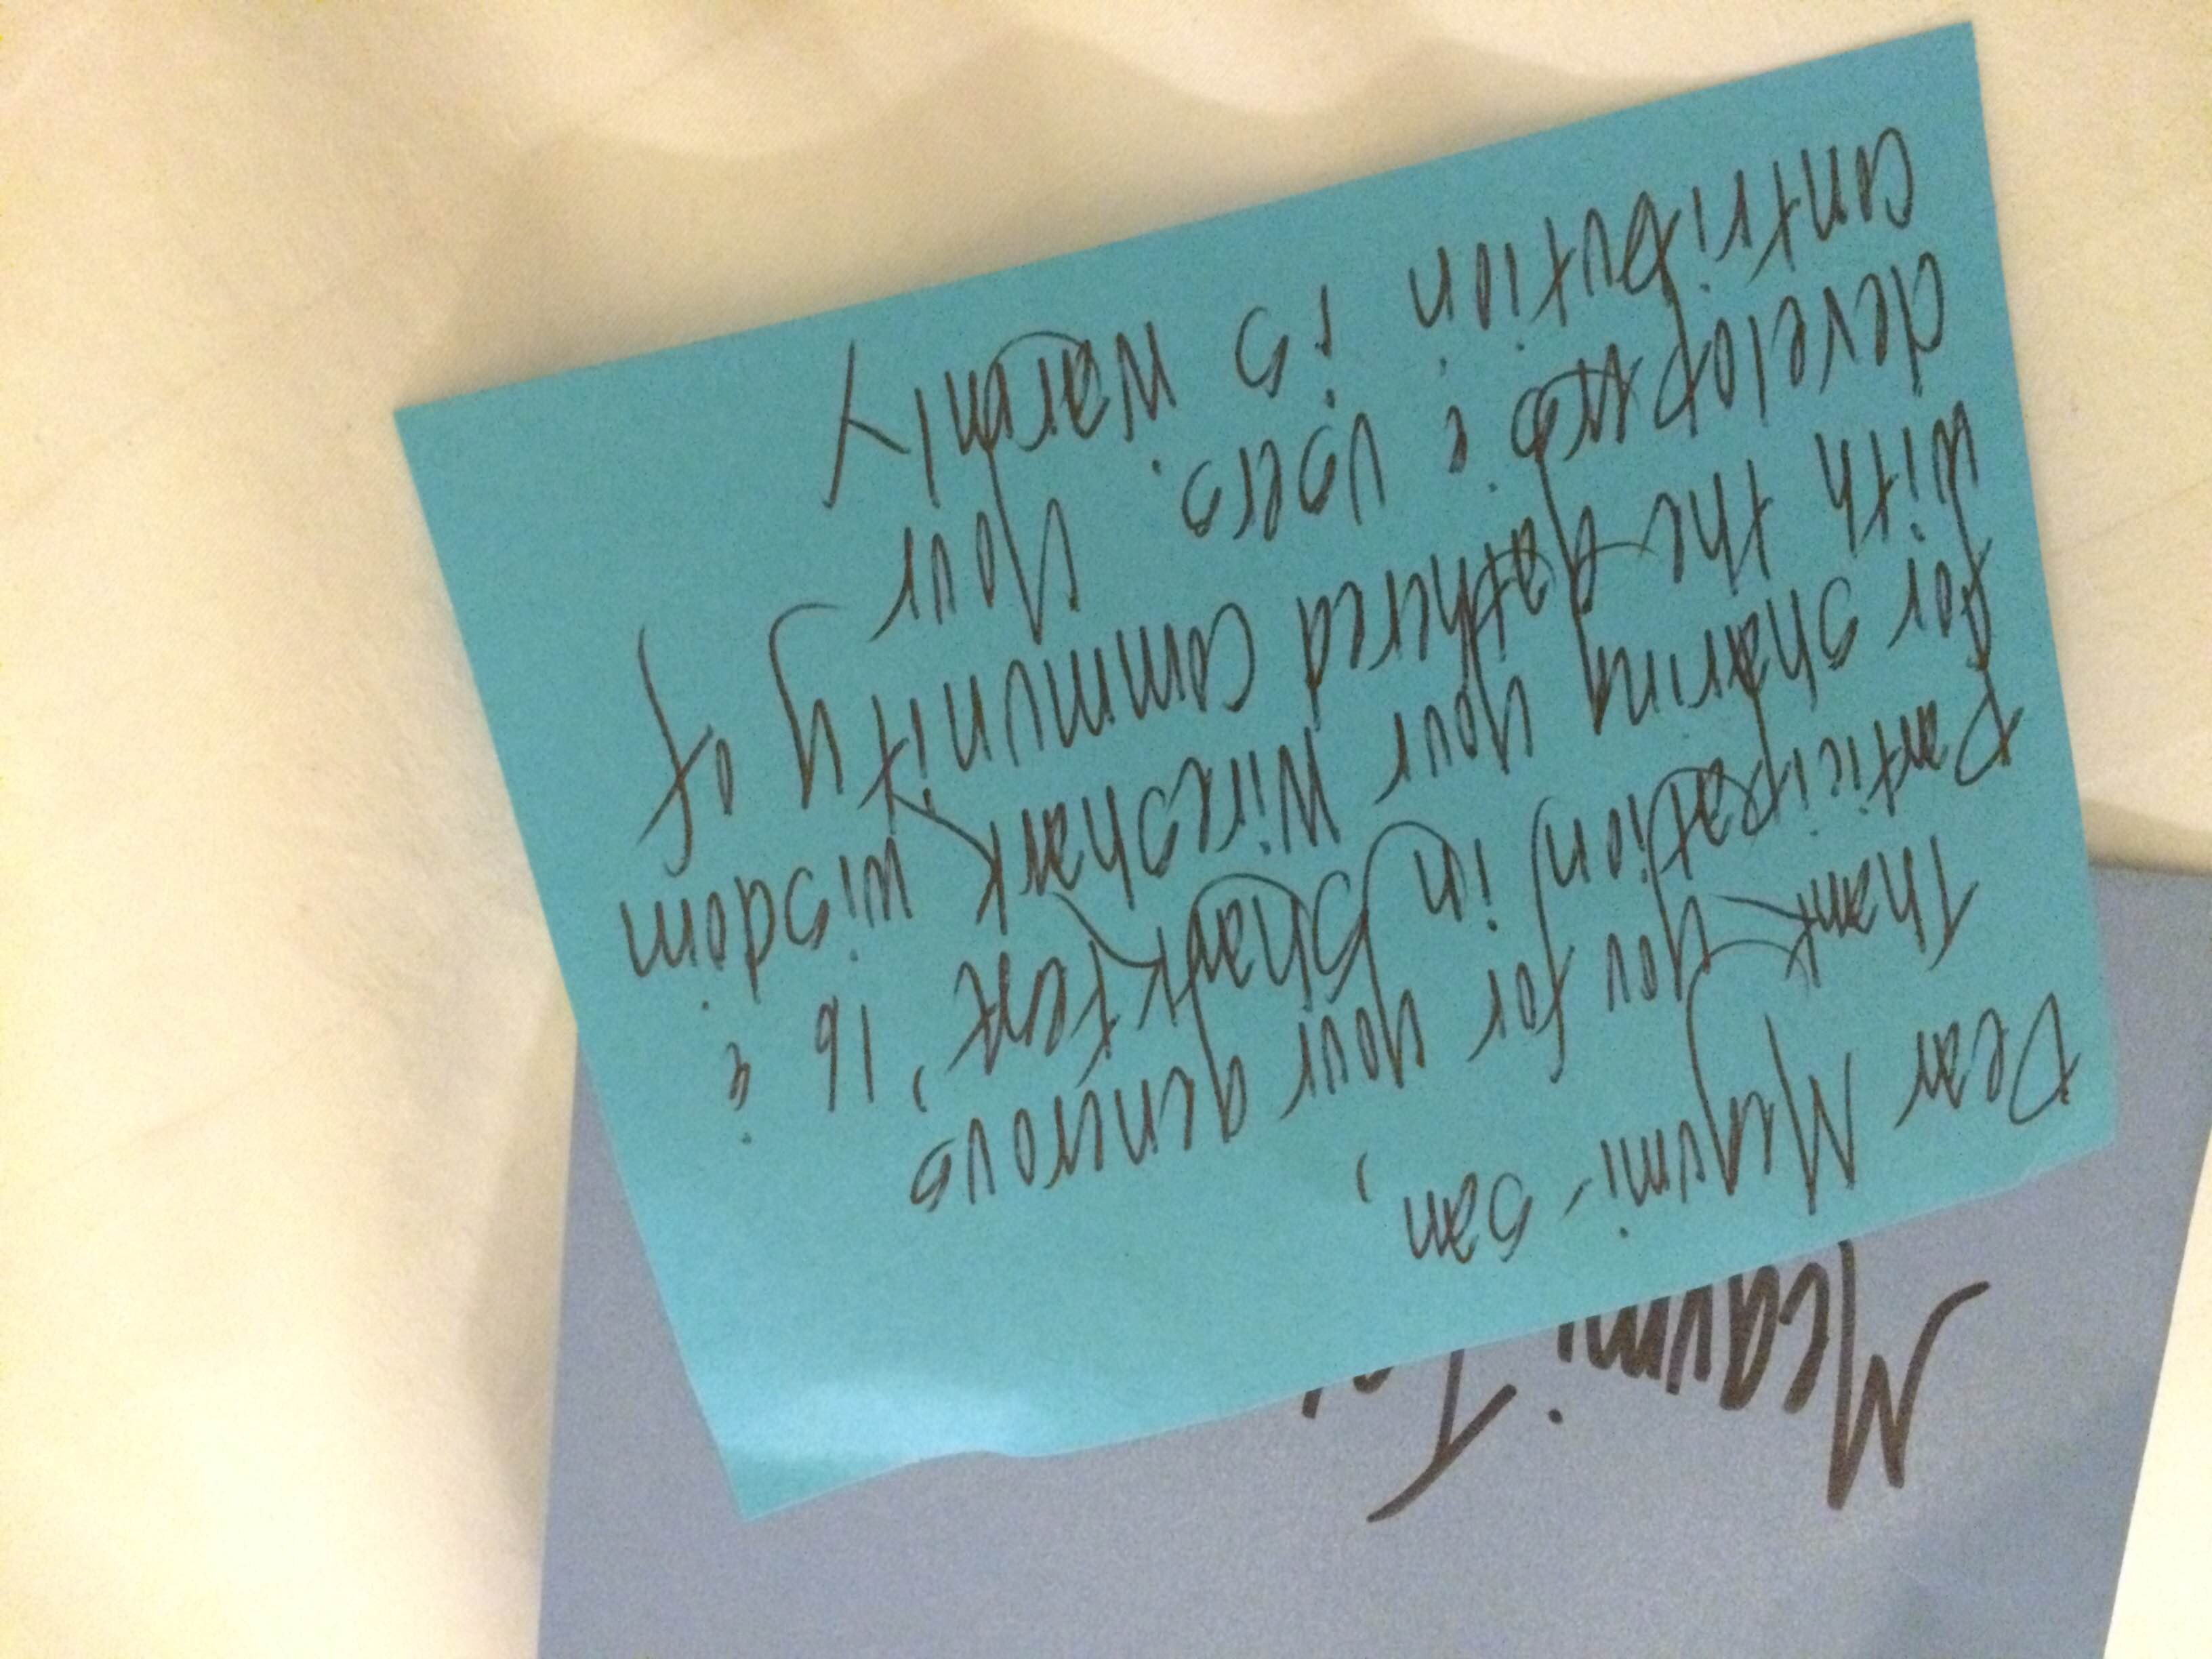 Dear Megumi-san,
Thank you for your generous
Participation in Sharkfest '16 &
for sharing your Wireshark wisdom
with the gathered community of
developers & users. Your
contribution is warmly
Megumi